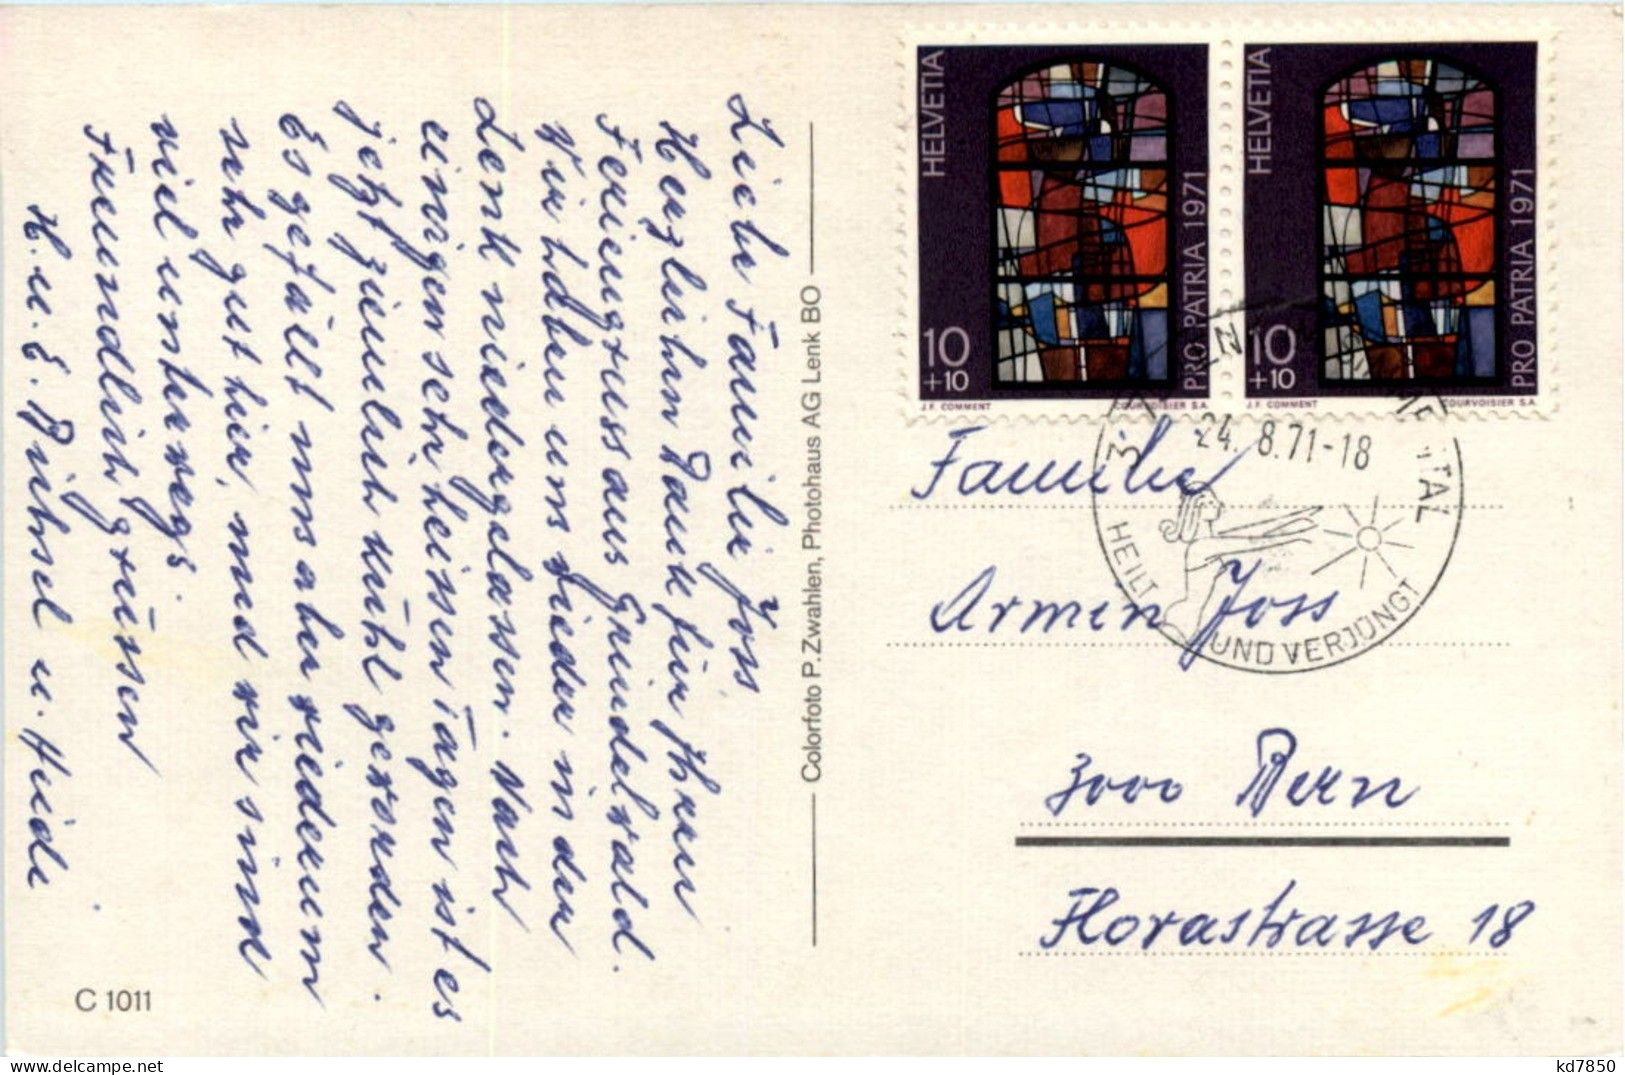 Liebe Familie Joss
Herzlichen Dank für Ihren
Feriengruss aus Grindelwald.
Wir haben uns wieder in der
Lenk niedergelassen. Nach
einigen sehr heissen Tagen ist es
jetzt ziemlich kühl geworden.
Es gefällt uns aber wiederum
sehr gut hier, und wir sind
viel unterwegs.
Freundlich grüssen
H. u. E. u. Heidi
C 1011
Colorfoto P. Zwahlen, Photohaus AG Lenk BO
HELVETIA
10
+10
PRO PATRIA 1971
J.F. COMMENT
COURVOISIER S.A.
HELVETIA
10
+10
PRO PATRIA 1971
J.F. COMMENT
COURVOISIER S.A.
24. 8.71-18
HEILT UND VERJÜNGT
Familie
Armin Joss
3000 Bern
Florastrasse 18
kd7850